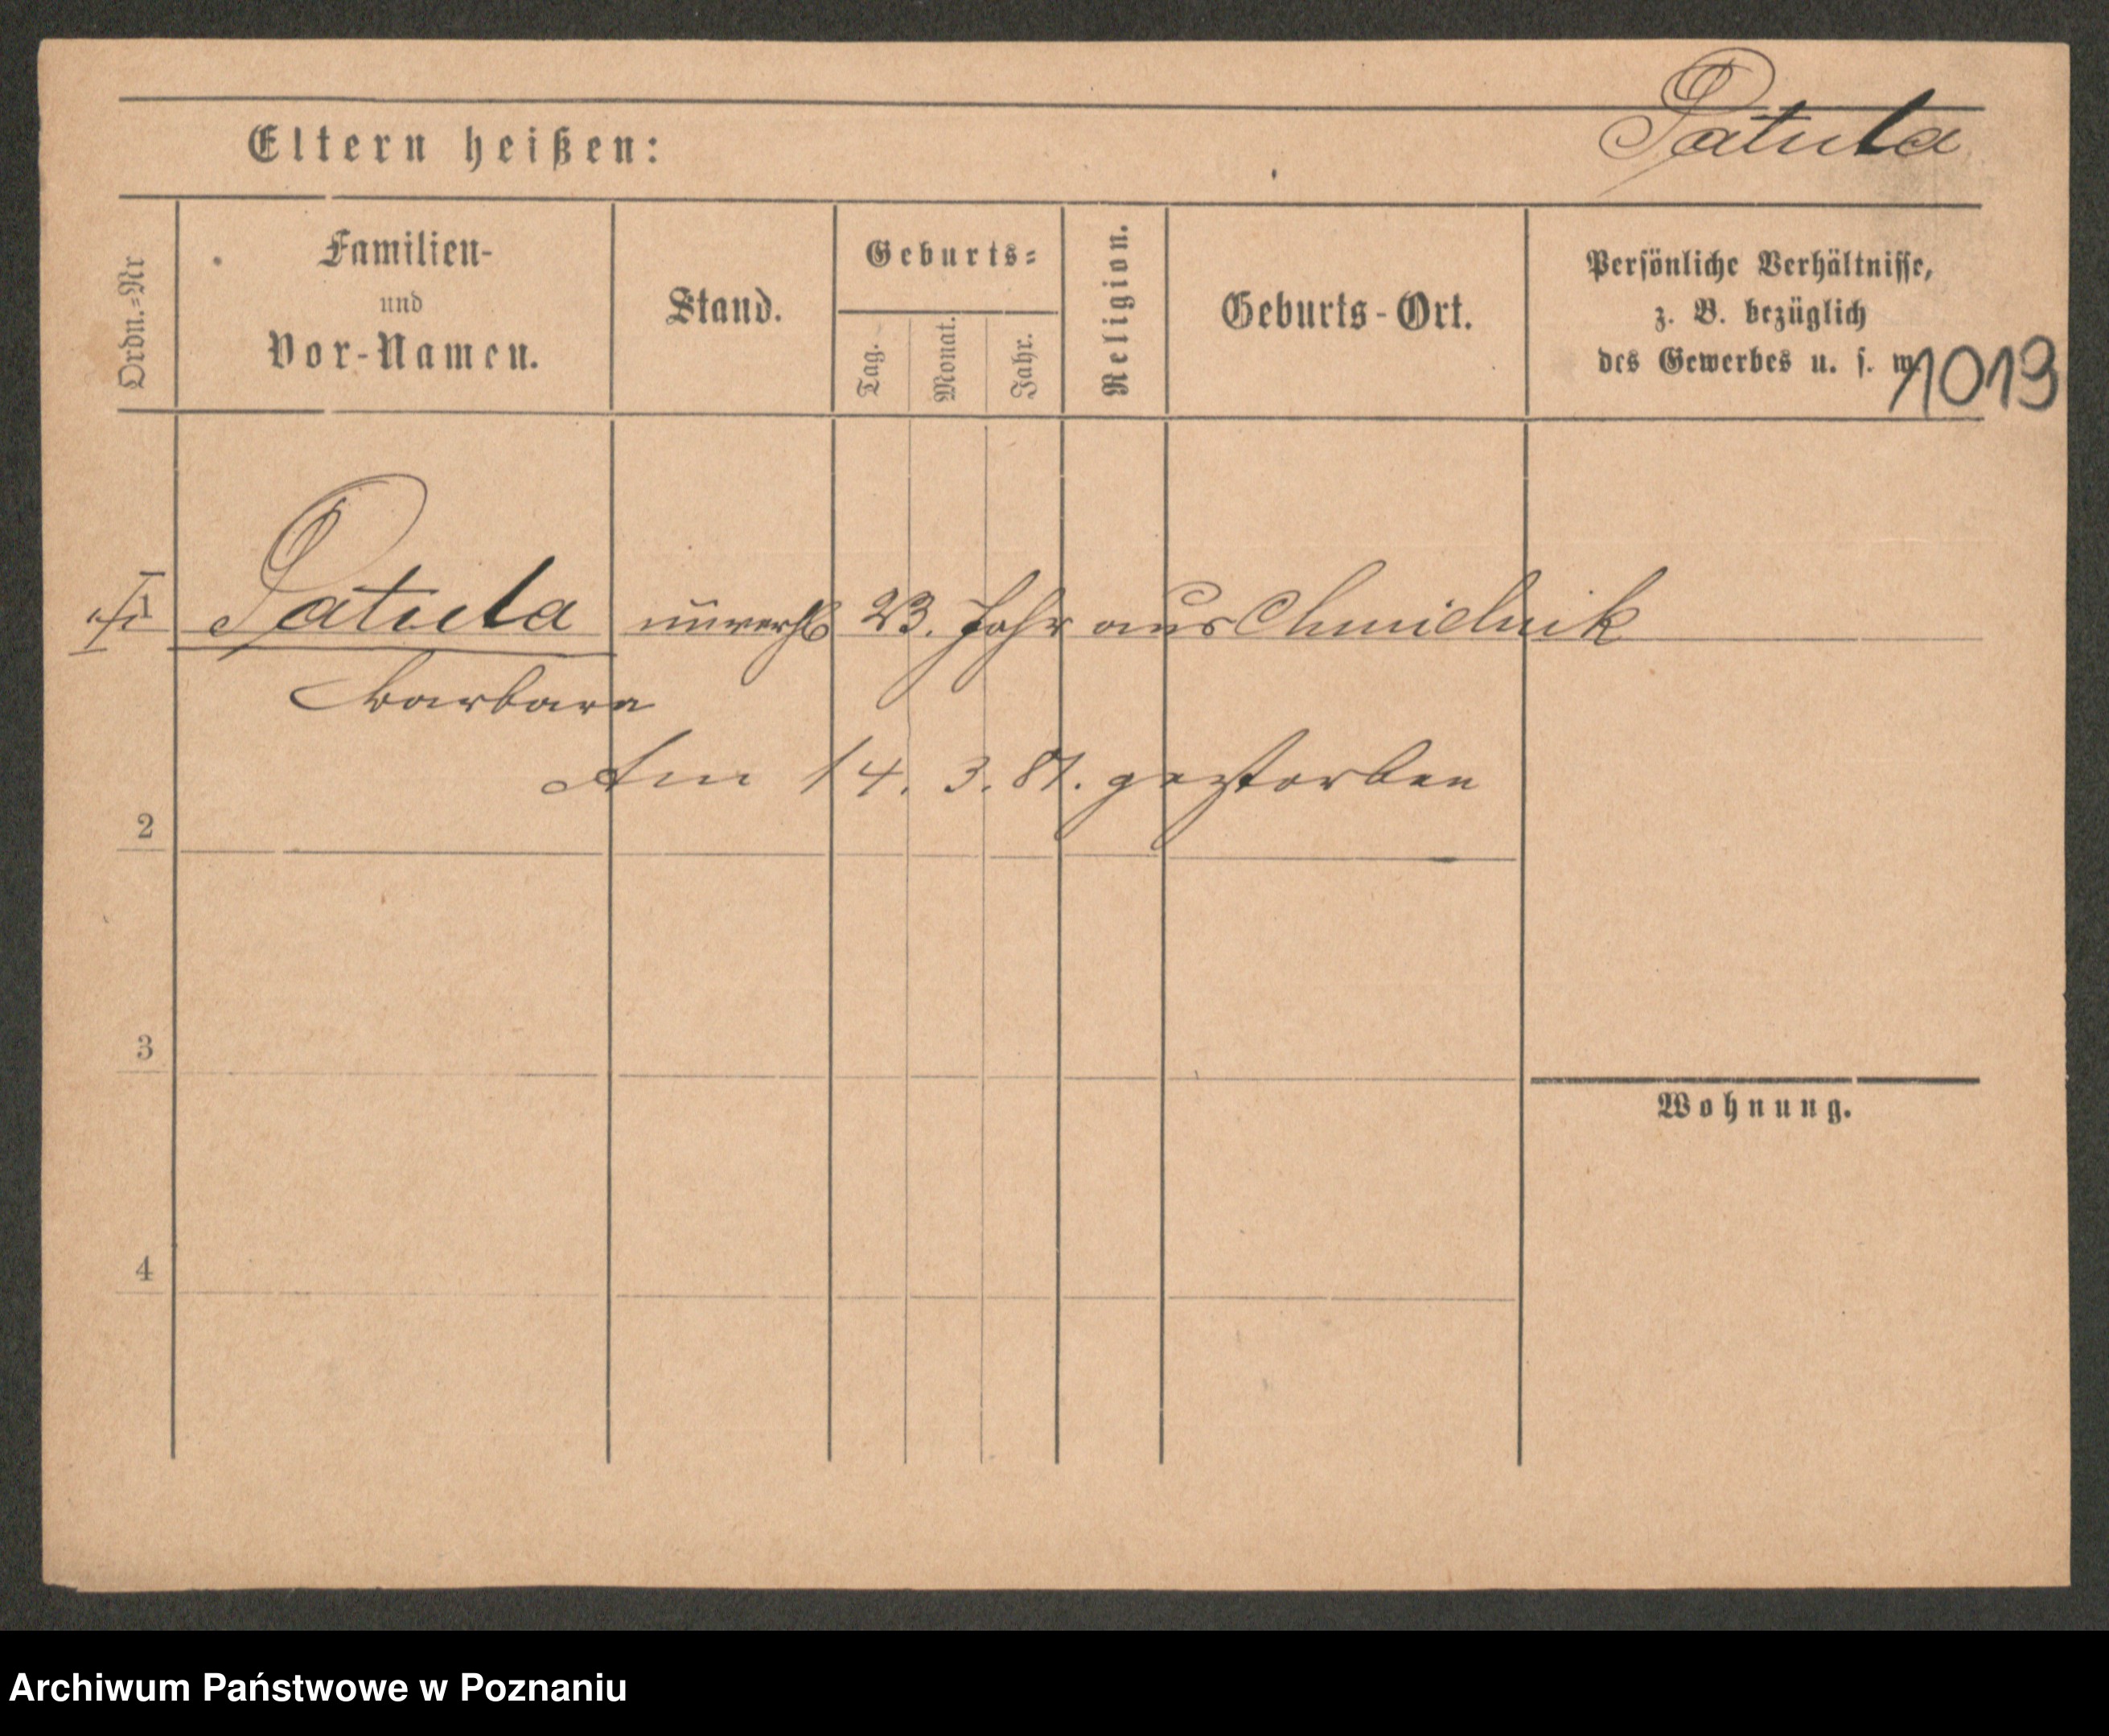 Patula
Eltern heißen:
Ordn.=Nr
Familien-
und
Vor-Namen.
Stand.
Geburts=
Tag.
Monat.
Jahr.
Religion.
Geburts-Ort.
Persönliche Verhältnisse,
z. B. bezüglich
des Gewerbes u. s. w.
1019
1 Patula unverh 23. Jahr aus Chmielnik
Barbara
Am 14. 3. 81. gestorben
2
3
Wohnung.
4
Archiwum Państwowe w Poznaniu